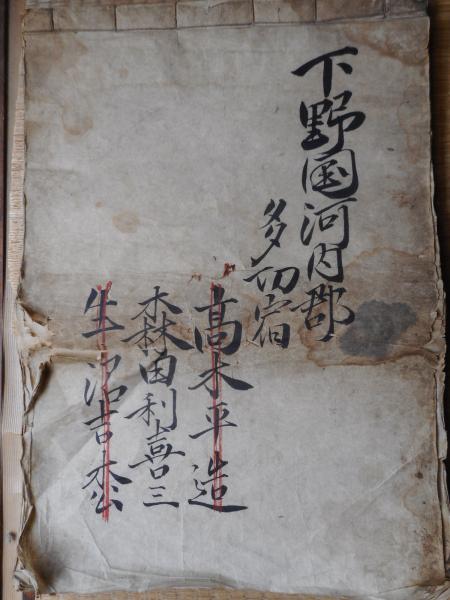 下野国河内郡
多功宿
髙木平造
森田利喜三
生沼吉枩